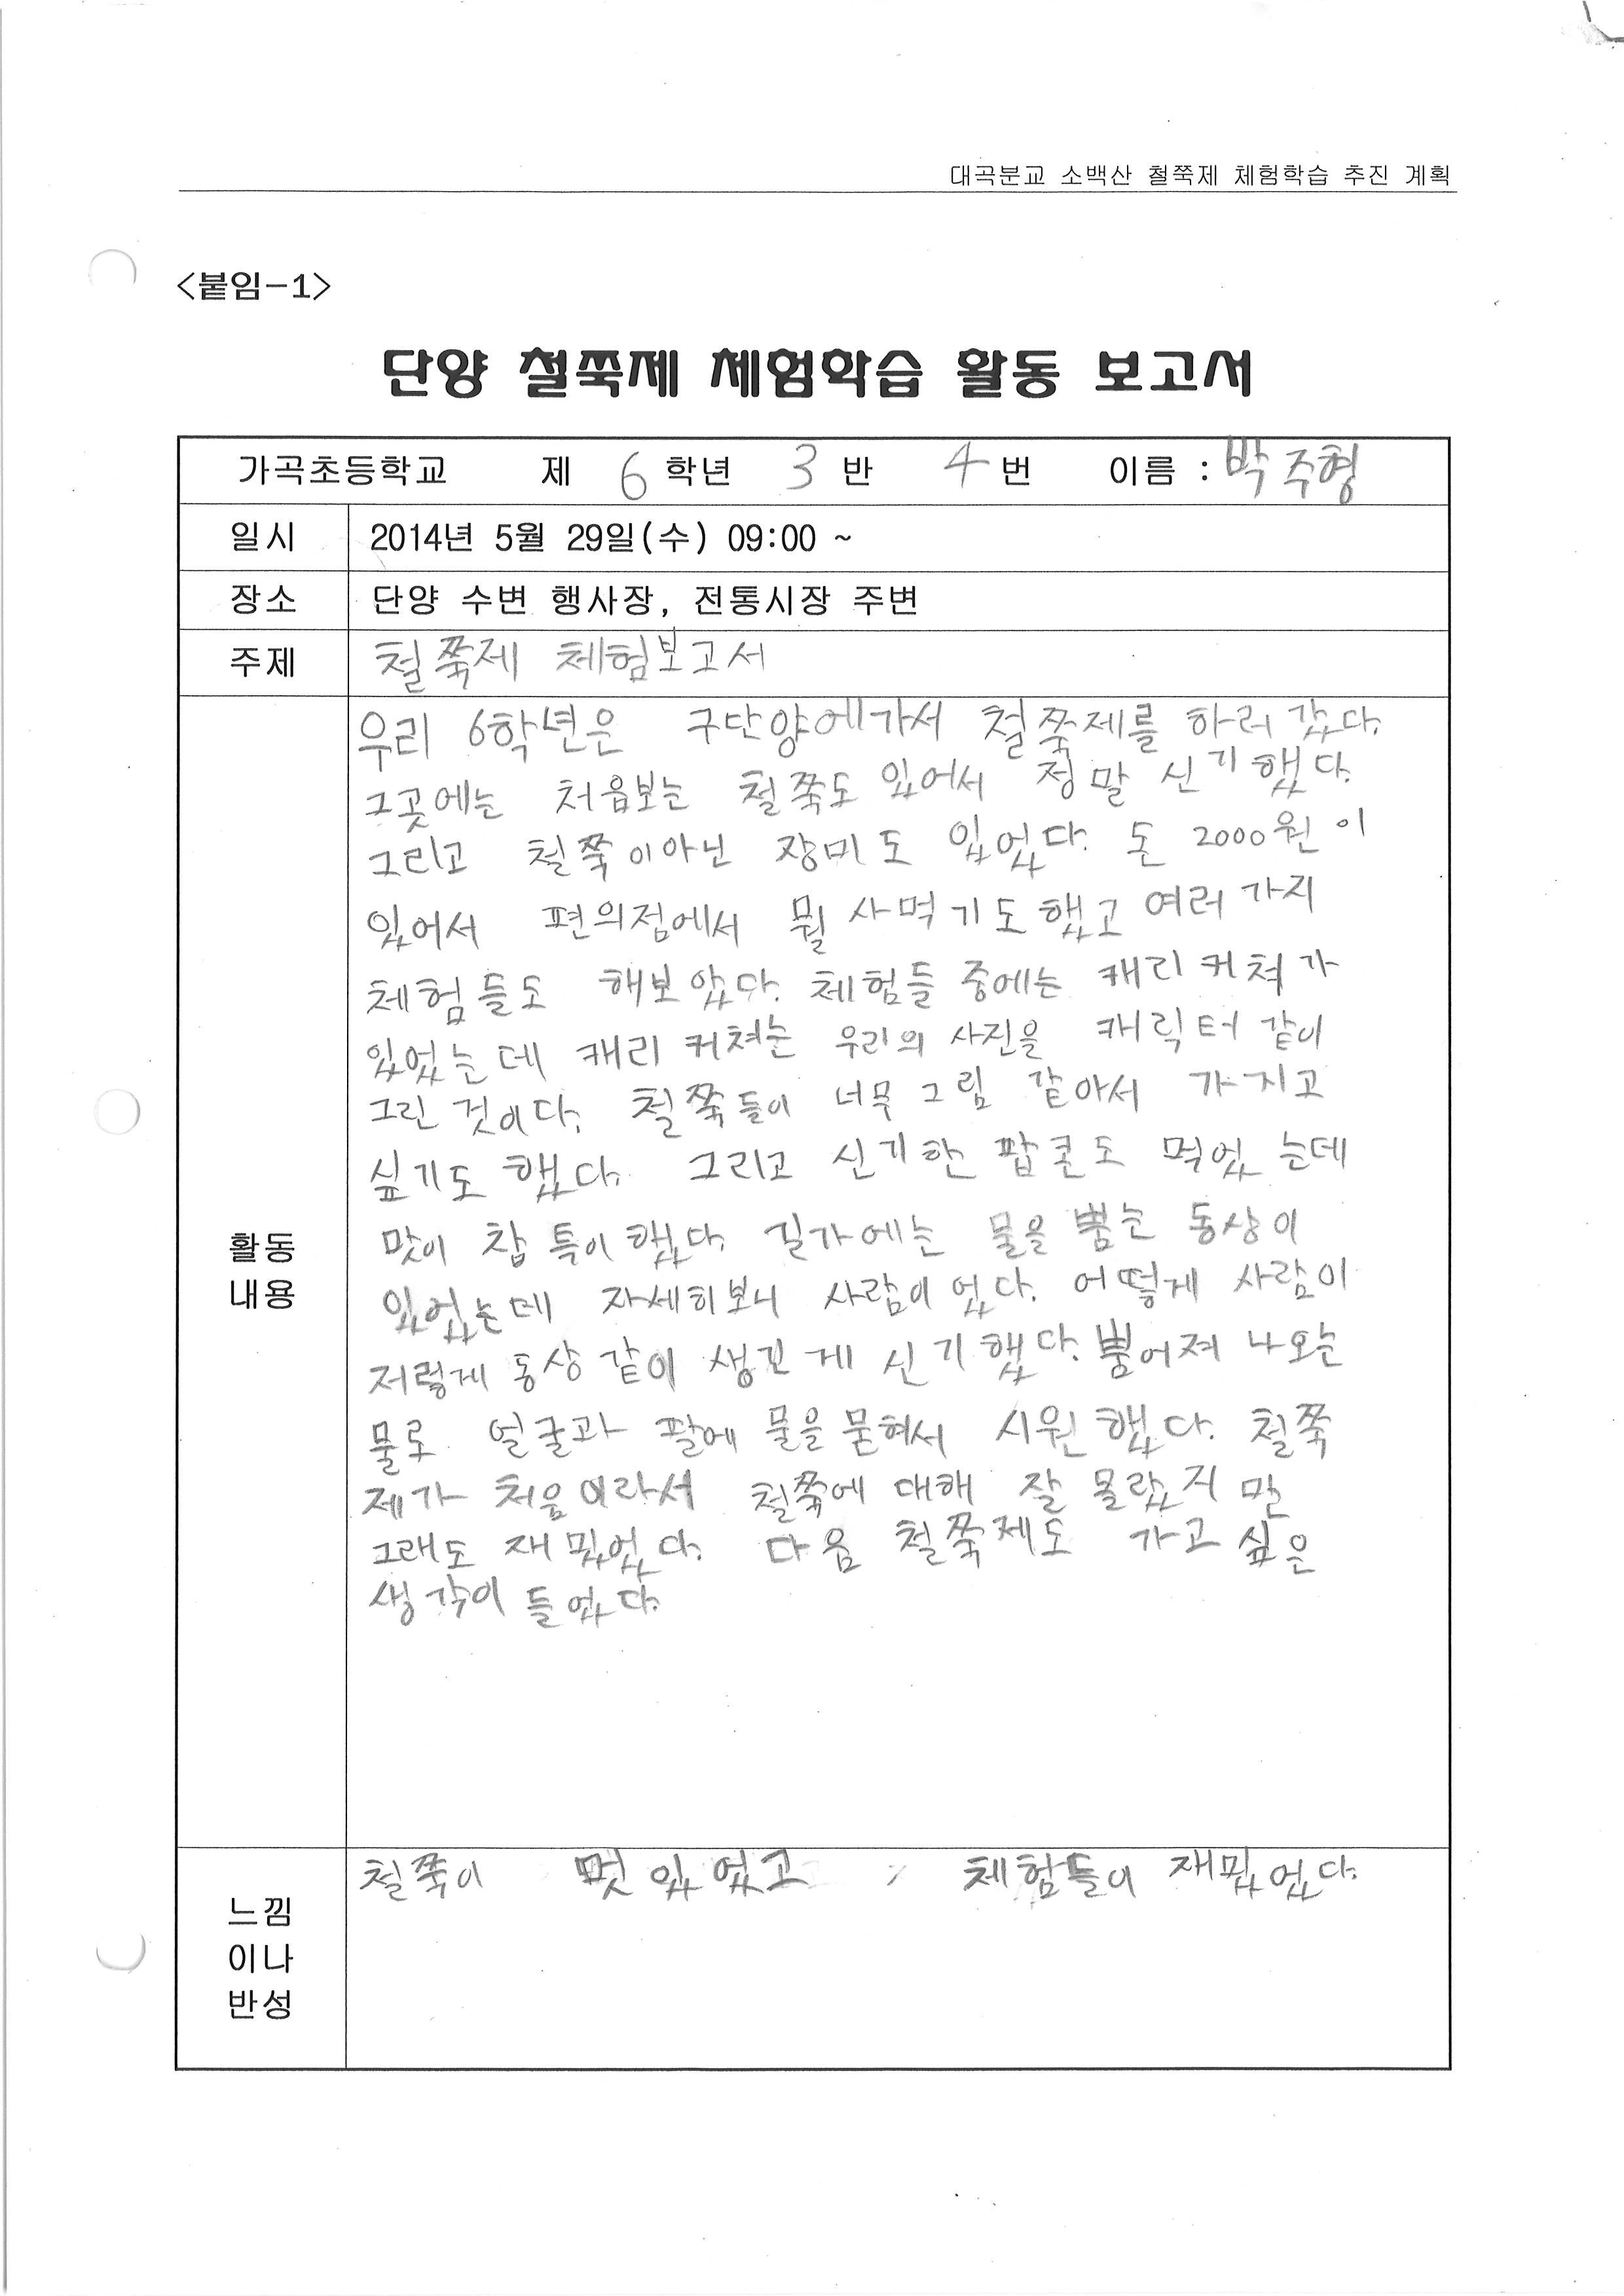 대곡분교 소백산 철쭉제 체험학습 추진 계획
<붙임-1>
단양 철쭉제 체험학습 활동 보고서
가곡초등학교 제 6 학년 3 반 4 번 이름 : 박주형
일시 2014년 5월 29일(수) 09:00 ~
장소 단양 수변 행사장, 전통시장 주변
주제 철쭉제 체험보고서
활동
내용
우리 6학년은 구단양에가서 철쭉제를 하러 갔다.
그곳에는 처음보는 철쭉도 있어서 정말 신기했다.
그리고 철쭉이아닌 장미도 있었다. 돈 2000원이
있어서 편의점에서 뭘 사먹기도 했고 여러가지
체험들도 해보았다. 체험들 중에는 캐리커쳐가
있었는데 캐리커쳐는 우리의 사진을 캐릭터 같이
그린 것이다. 철쭉들이 너무 그림 같아서 가지고
싶기도 했다. 그리고 신기한 팝콘도 먹었는데
맛이 참 특이했다. 길가에는 물을 뿜는 동상이
있었는데 자세히보니 사람이었다. 어떻게 사람이
저렇게 동상 같이 생긴게 신기했다. 뿜어져 나오는
물로 얼굴과 팔에 물을 묻혀서 시원했다. 철쭉
제가 처음이라서 철쭉에 대해 잘 몰랐지만
그래도 재밌었다. 다음 철쭉제도 가고싶은
생각이 들었다.
느낌
이나
반성
철쭉이 멋있었고 체험들이 재밌었다.